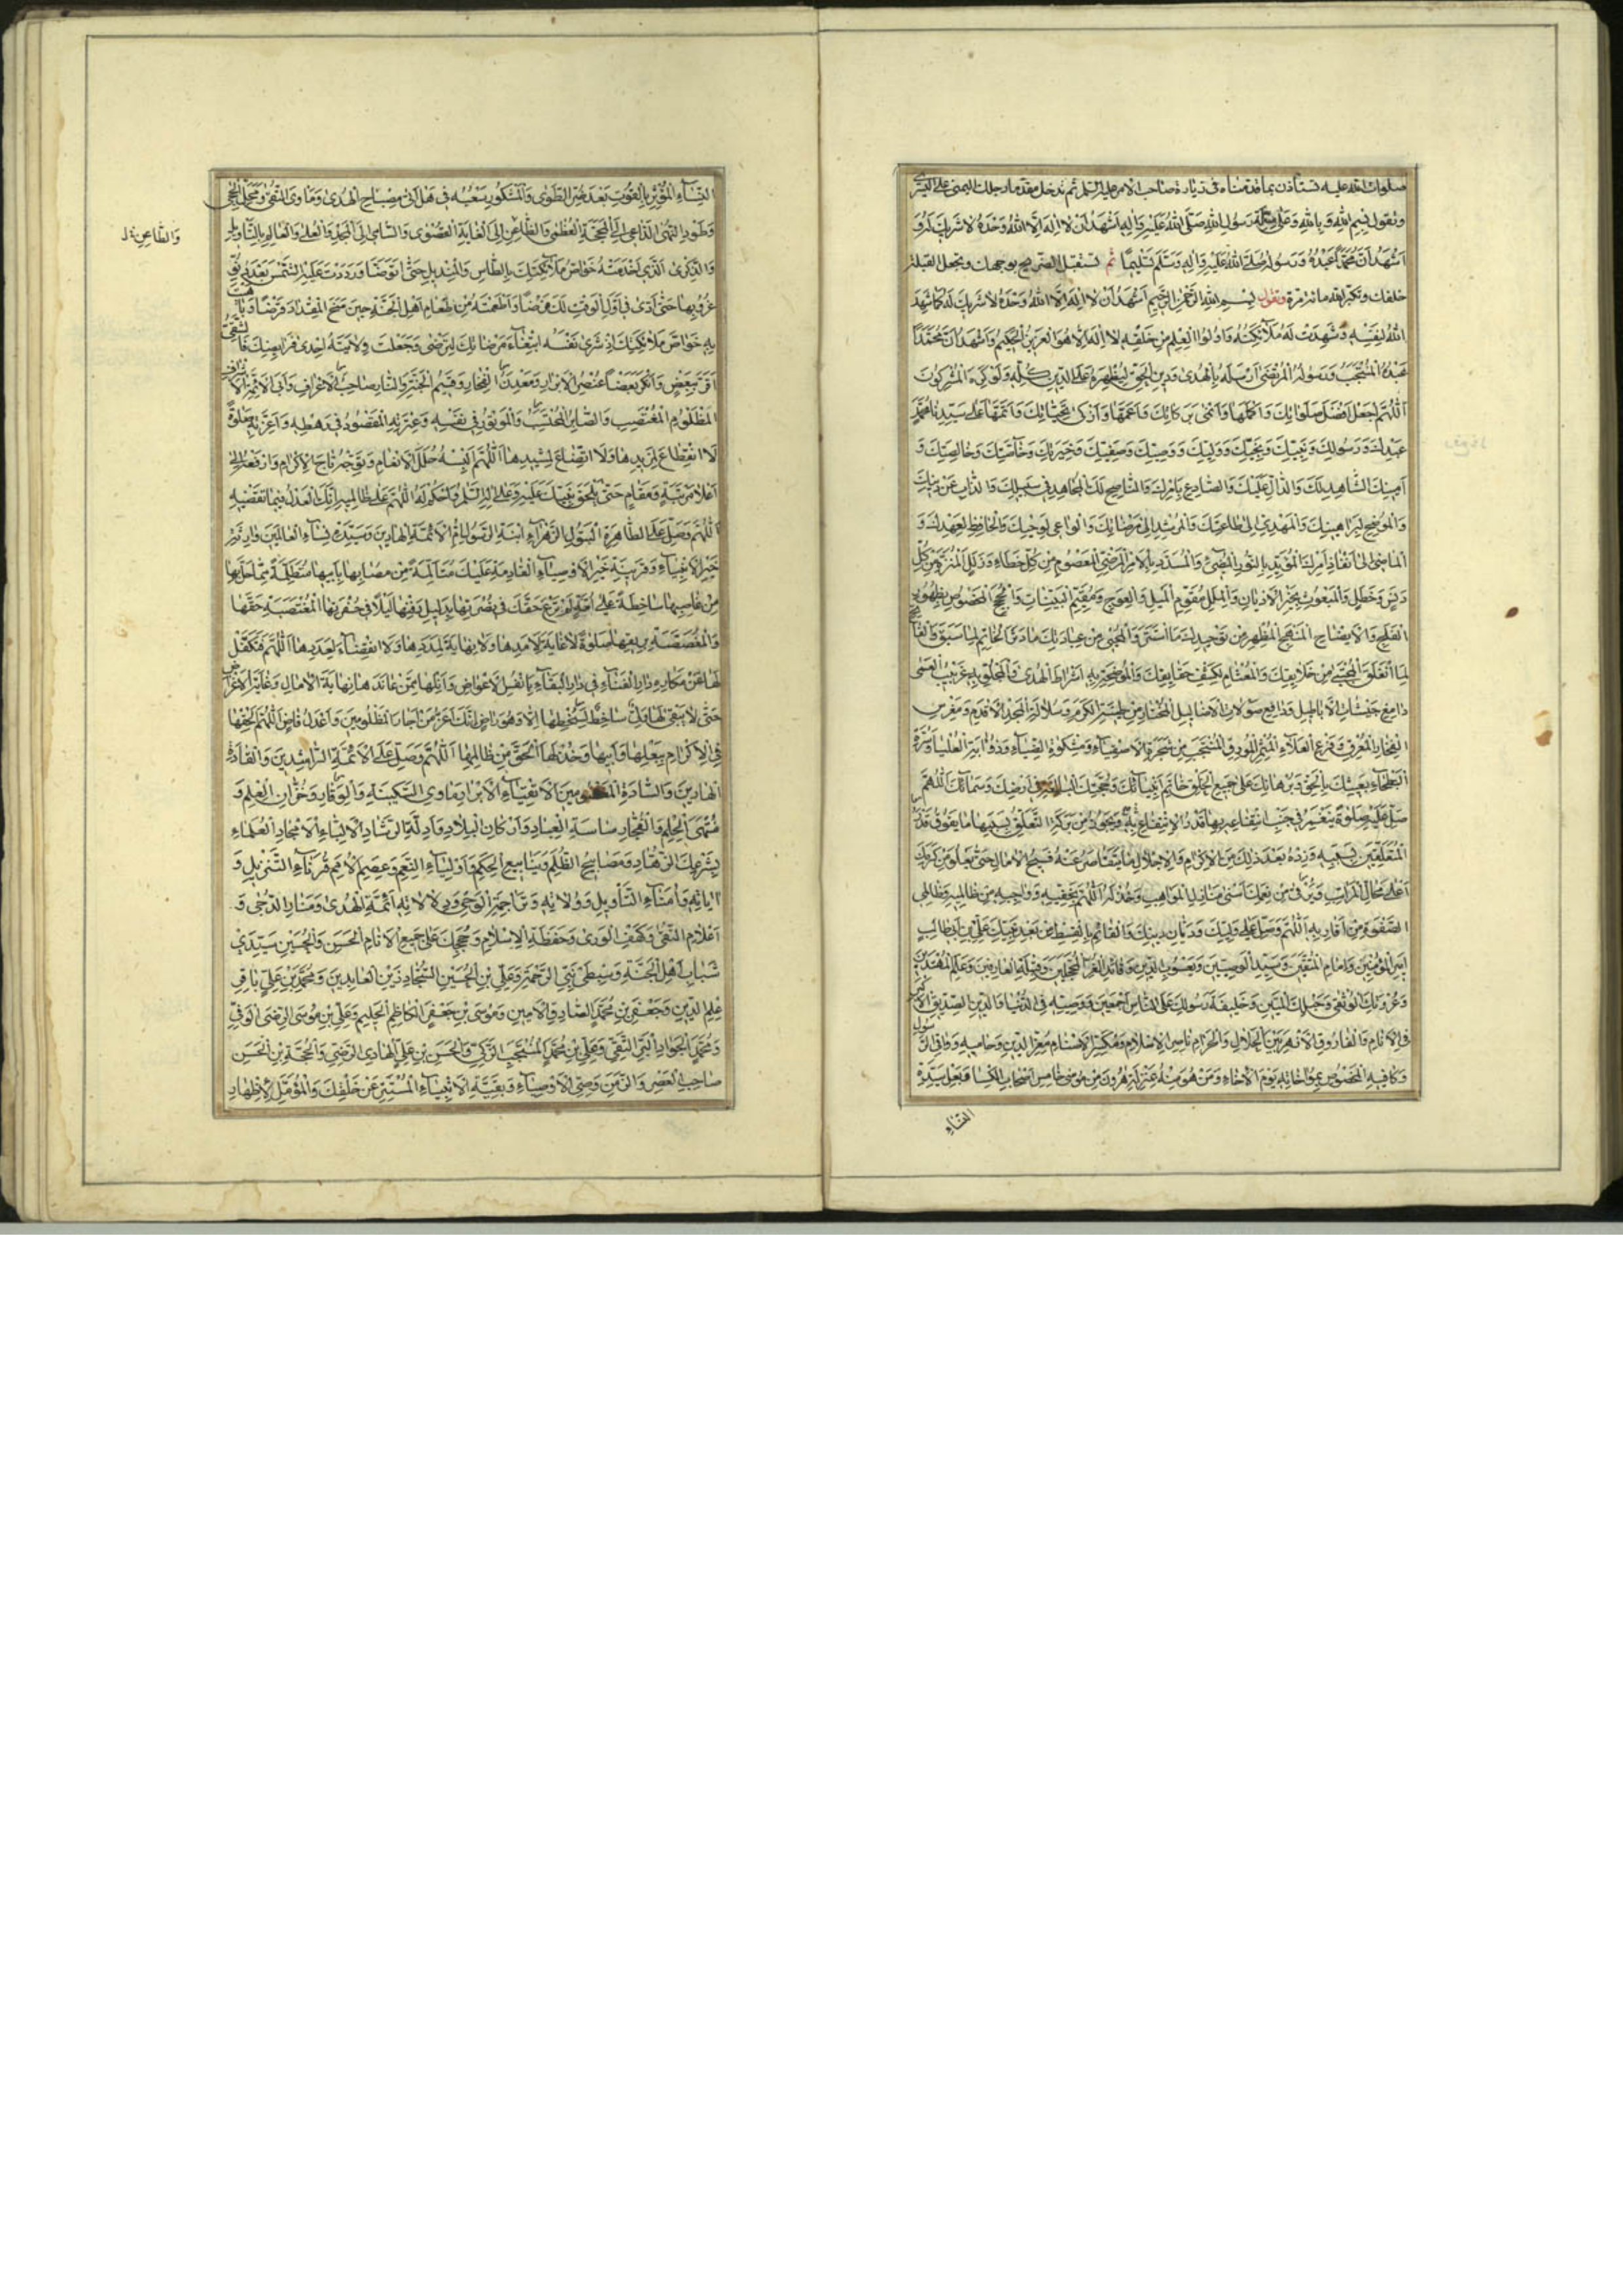 صلوات الله عليه تستأذن بما قدمناه فى زيارة صاحب الامر عليه السلم ثم تدخل مقدما رجلك اليمنى على اليسرى
وتقول بسم الله وبالله وعلى ملة رسول الله صلى الله عليه واله اشهد ان لا اله الا الله وحده لا شريك له و
اشهد ان محمدا عبده ورسوله صلى الله عليه واله وسلم تسليما ثم تستقبل الضريح بوجهك وتجعل القبلة
خلفك وتكبر الله مائة مرة وتقول بسم الله الرحمن الرحيم اشهد ان لا اله الا الله وحده لا شريك له كما شهد
الله لنفسه وشهدت له ملائكته واولوا العلم من خلقه لا اله الا هو العزيز الحكيم واشهد ان محمدا
عبده المنتجب ورسوله المرتضى ارسله بالهدى ودين الحق ليظهره على الدين كله ولو كره المشركون
اللهم اجعل افضل صلواتك واكملها وانمى بركاتك واعمها وازكى تحياتك واتمها على سيدنا محمد
عبدك ورسولك ونجيك ووليك ورضيك وصفيك وخيرتك وخاصتك وخالصتك و
امينك الشاهد لك والدال عليك والصادع بامرك والناصح لك المجاهد فى سبيلك والذاب عن دينك
والموضح لبراهينك والمهدى الى طاعتك والمرشد الى مرضاتك والواعى لوحيك والحافظ لعهدك و
الماضى على انفاذ امرك المؤيد بالنور المضىء والمسدد بالامر المرضى المعصوم من كل خطاء وزلل المنزه من كل
دنس وخطل والمبعوث بخير الاديان والملل مقوم الميل والعوج ومقيم البينات والحجج المخصوص بظهور
الفلج وايضاح المنهج المظهر من توحيدك ما استتر والمحيى من عبادتك ما دثر الخاتم لما سبق والفاتح
لما انغلق المجتبى من خلائقك والمعتام لكشف حقائقك والموضحة به اشراط الهدى والمجلو به غربيب العمى
دامغ جيشات الاباطيل ودافع صولات الاضاليل المختار من طينة الكرم وسلالة المجد الاقدم ومغرس
الفخار المعرق وفرع العلاء المثمر المورق المنتجب من شجرة الاصفياء ومشكوة الضياء وذؤابة العلياء وسرة
البطحاء بعيثك بالحق وبرهانك على جميع الخلق خاتم انبيائك وحجتك البالغة فى ارضك وسمائك اللهم
صل عليه صلوة ينغمر فى جنب انتفاعه بها قدر الانتفاع ويحوز من بركة التعلق بسببها ما يفوق قدر
المتعلقين بسببه وزده بعد ذلك من الاكرام والاجلال ما يتقاصر عنه فسيح الامال حتى يعلو من كرمك
اعلى محال المراتب ويرقى من نعمك اسنى منازل المواهب وخذ له اللهم بحقه وواجبه من ظالميه وظالمى
الصفوة من اقاربه اللهم وصل على وليك وديان دينك والقائم بالقسط من بعد نبيك على بن ابى طالب
امير المؤمنين وامام المتقين وسيد الوصيين ويعسوب الدين وقائد الغر المحجلين وقبلة العارفين وعلم المهتدين
وعروتك الوثقى وحبلك المتين وخليفة رسولك على الناس اجمعين ووصيه فى الدنيا والدين الصديق الاكبر
فى الانام والفاروق الازهر بين الحلال والحرام ناصر الاسلام ومكسر الاصنام معز الدين وحاميه وواقى الرسول
وكافيه المخصوص بمواخاته يوم الاخاء ومن هو منه بمنزلة هرون من موسى خامس اصحاب الكساء وبعل سيدة
النساء
النساء المؤثر بالقوت بعد ضر الطوى والمشكور سعيه فى هل اتى مصباح الهدى وماوى التقى ومحل الحجى
وطود النهى الداعى الى المحجة العظمى والظاعن الى الغاية القصوى والسامى الى المجد والعلى والعالم بالتاويل
والذكرى الذى اخدمته خواص ملائكتك بالطاس والمنديل حتى توضا ورددت عليه الشمس بعد دنو
غروبها حتى ادى فى اول الوقت لك فرضا واطعمته من طعام اهل الجنة حين منح المقداد قرضا وباهيت
به خواص ملائكتك اذ شرى نفسه ابتغاء مرضاتك لترضى وجعلت ولايته احدى فرائضك فالشقى
من اقر ببعض وانكر بعضا عنصر الابرار ومعدن الفخار وقسيم الجنة والنار صاحب الاعراف وابى الائمة الاشراف
المظلوم المغتصب والصابر المحتسب والموتور فى نفسه وعترته المقصود فى رهطه واعزته صلوة
لا انقطاع لمزيدها ولا اتضاع لمشيدها اللهم البسه حلل الانعام وتوجه تاج الاكرام وارفعه الى
اعلا مرتبة ومقام حتى يلحق نبيك عليه وعلى اله السلم واحكم له اللهم على ظالميه انك العدل فيما تقضيه
اللهم وصل على الطاهرة البتول الزهراء ابنة الرسول ام الائمة الهادين وسيدة نساء العالمين وارثة
خير الانبياء وقرينة خير الاوصياء القادمة عليك متالمة من مصابها بابيها متظلمة مما حل بها
من غاصبيها ساخطة على امة لم ترع حقك فى نصرتها بدليل دفنها ليلا فى حفرتها المغتصبة حقها
والمغصصة بريقها صلوة لا غاية لامدها ولا نهاية لمددها ولا انقضاء لعددها اللهم فتكفل
لها عن مكاره دار الفناء فى دار البقاء بانفس الاعواض وانلها ممن عاندها نهاية الامال وغاية الاغراض
حتى لا يبقى لها ولى ساخط لسخطها الا وهو راض انك اعز من اجار المظلومين واعدل قاض اللهم الحقها
فى الاكرام ببعلها وابيها وخذ لها الحق من ظالميها اللهم وصل على الائمة الراشدين والقادة
الهادين والسادة المعصومين الاتقياء الابرار ماوى السكينة والوقار وخزان العلم و
منتهى الحلم والفخار ساسة العباد واركان البلاد وادلة الرشاد الالباء الامجاد العلماء
بشرعك الزهاد ومصابيح الظلم وينابيع الحكم واولياء النعم وعصم الامم قرناء التنزيل و
اياته وامناء التاويل وولاته وتراجمة الوحى ودلالاته ائمة الهدى ومنار الدجى و
اعلام التقى وكهف الورى وحفظة الاسلام وحججك على جميع الانام الحسن والحسين سيدى
شباب اهل الجنة وسبطى نبى الرحمة وعلى بن الحسين السجاد زين العابدين ومحمد بن على باقر
علم الدين وجعفر بن محمد الصادق الامين وموسى بن جعفر الكاظم الحليم وعلى بن موسى الرضى الوفى
ومحمد الجواد البر التقى وعلى بن محمد المنتجب الزكى والحسن بن على الهادى الرضى والحجة بن الحسن
صاحب العصر والزمن وصى الاوصياء وبقية الانبياء المستتر عن خلقك والمؤمل لاظهار